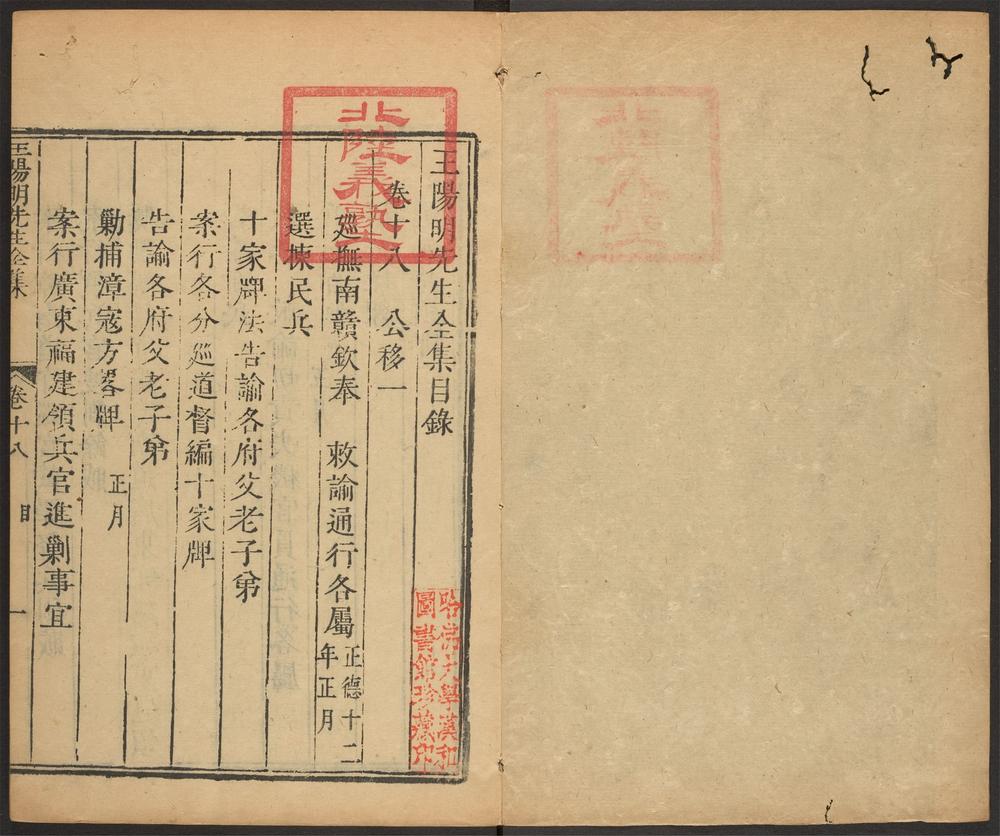 王陽明先生全集目錄
卷十八　公移一
廵撫南贛欽奉　敕諭通行各屬正德十二年正月
選揀民兵
十家牌法告諭各府父老子弟
案行各分廵道督編十家牌
告諭各府父老子弟
勦捕漳寇方畧牌　正月
案行廣東福建領兵官進剿事宜
王陽明先生全集　卷十八　目　一
北陸義塾
哈佛大學漢和圖書館珍藏印